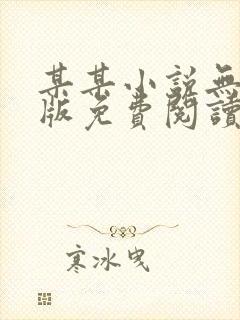 某某小説無
版免費閱讀
寒冰曳